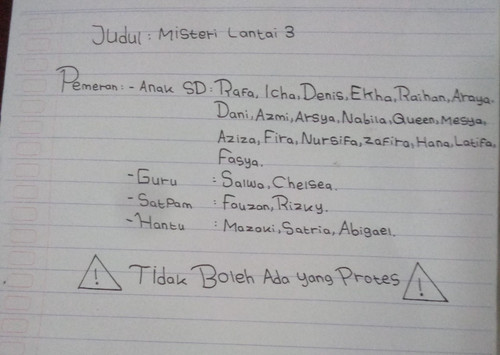 Judul : Misteri Lantai 3
Pemeran : - Anak SD : Rafa, Icha, Denis, Ekha, Raihan, Araya.
Dani, Azmi, Arsya, Nabila, Queen, Mesya,
Aziza, Fira, Nursifa, Zafira, Hana, Latifa,
Fasya.
- Guru : Salwa, Chelsea.
- Satpam : Fouzan, Rizky.
- Hantu : Mazaki, Satria, Abigael.
! Tidak Boleh Ada yang Protes !